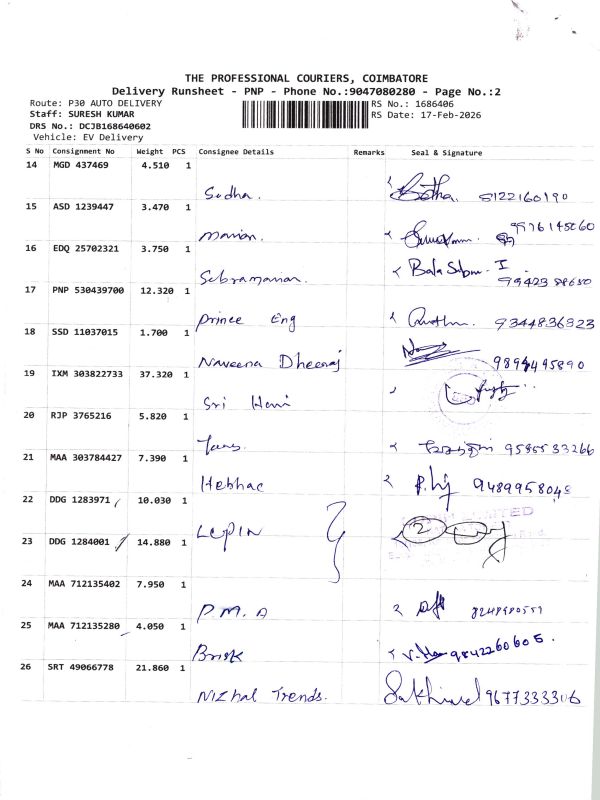 THE PROFESSIONAL COURIERS, COIMBATORE
Delivery Runsheet - PNP - Phone No.:9047080280 - Page No.:2
Route: P30 AUTO DELIVERY
RS No.: 1686406
Staff: SURESH KUMAR
RS Date: 17-Feb-2026
DRS No.: DCJB168640602
Vehicle: EV Delivery
S No Consignment No Weight PCS Consignee Details Remarks Seal & Signature
14 MGD 437469 4.510 1
Sudha. 8122160190
15 ASD 1239447 3.470 1
Marian.
16 EDQ 25702321 3.750 1
Subramanian. Bala Subm. I
17 PNP 530439700 12.320 1
Prince Eng 9344836323
18 SSD 11037015 1.700 1
Naveena Dheeraj
19 IXM 303822733 37.320 1
Sri Hani
20 RJP 3765216 5.820 1
9585533266
21 MAA 303784427 7.390 1
Hebhac 9489958048
22 DDG 1283971 10.030 1
LEPIN 2
23 DDG 1284001 14.880 1
24 MAA 712135402 7.950 1
P.M.A
25 MAA 712135280 4.050 1
Brisk 9842260605.
26 SRT 49066778 21.860 1
Nizhal Trends. Sakthivel 9677333306